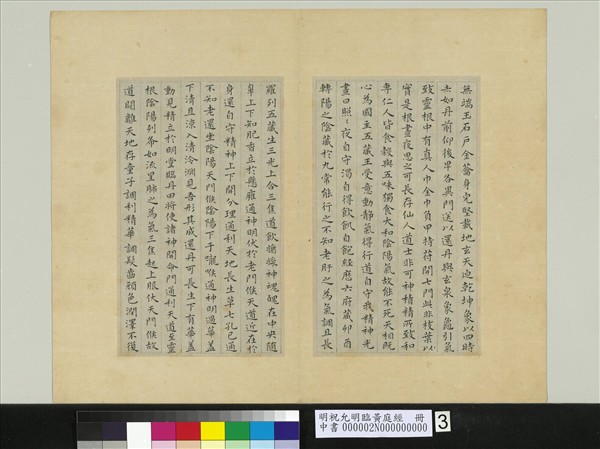 無端玉石戶金籥身完堅載地玄天迫乾坤象以四時
赤如丹前仰後卑各異門送以還丹與玄泉象龜引氣
致靈根中有真人巾金巾負甲持苻開七門此非枝葉以
實是根晝夜思之可長存仙人道士非可神積精所致和
專仁人皆食穀與五味獨食大和陰陽氣故能不死天相既
心為國主五藏王受意動靜氣得行道自守我精神光
晝日昭昭夜自守渴自得飲飢自飽經歷六府藏卯酉
轉陽之陰藏於九常能行之不知老肝之為氣調且長
羅列五藏生三光上合三焦道飲醬漿神魂魄在中央隨
鼻上下知肥香立於懸雍通神明伏於老門候天道近在於
身還自守精神上下開分理通利天地長生草七孔已通
不知老還坐陰陽天門候陰陽下于嚨喉通神明過華蓋
下清且涼入清泠淵見吾形其成還丹可長生下有華蓋
動見精立於明堂臨丹田將使諸神開命門通利天道至靈
根陰陽列布如流星肺之為氣三焦起上服伏天門候故
道闚離天地存童子調利精華調髮齒顏色潤澤不復
明祝允明臨黃庭經 冊
中書 000002N000000000
3